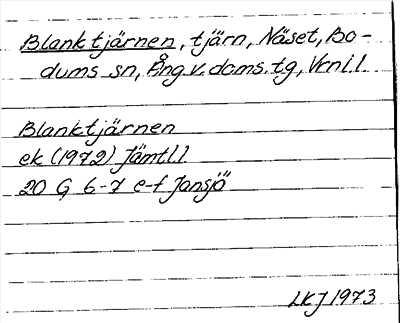 Blanktjärnen, tjärn, Näset, Bo-
dums sn, Ång.v. doms.tg, Vrnl.l.
Blanktjärnen
ek (1972) Jämtl.l.
20 G 6-7 e-f Jansjö
LKJ 1973